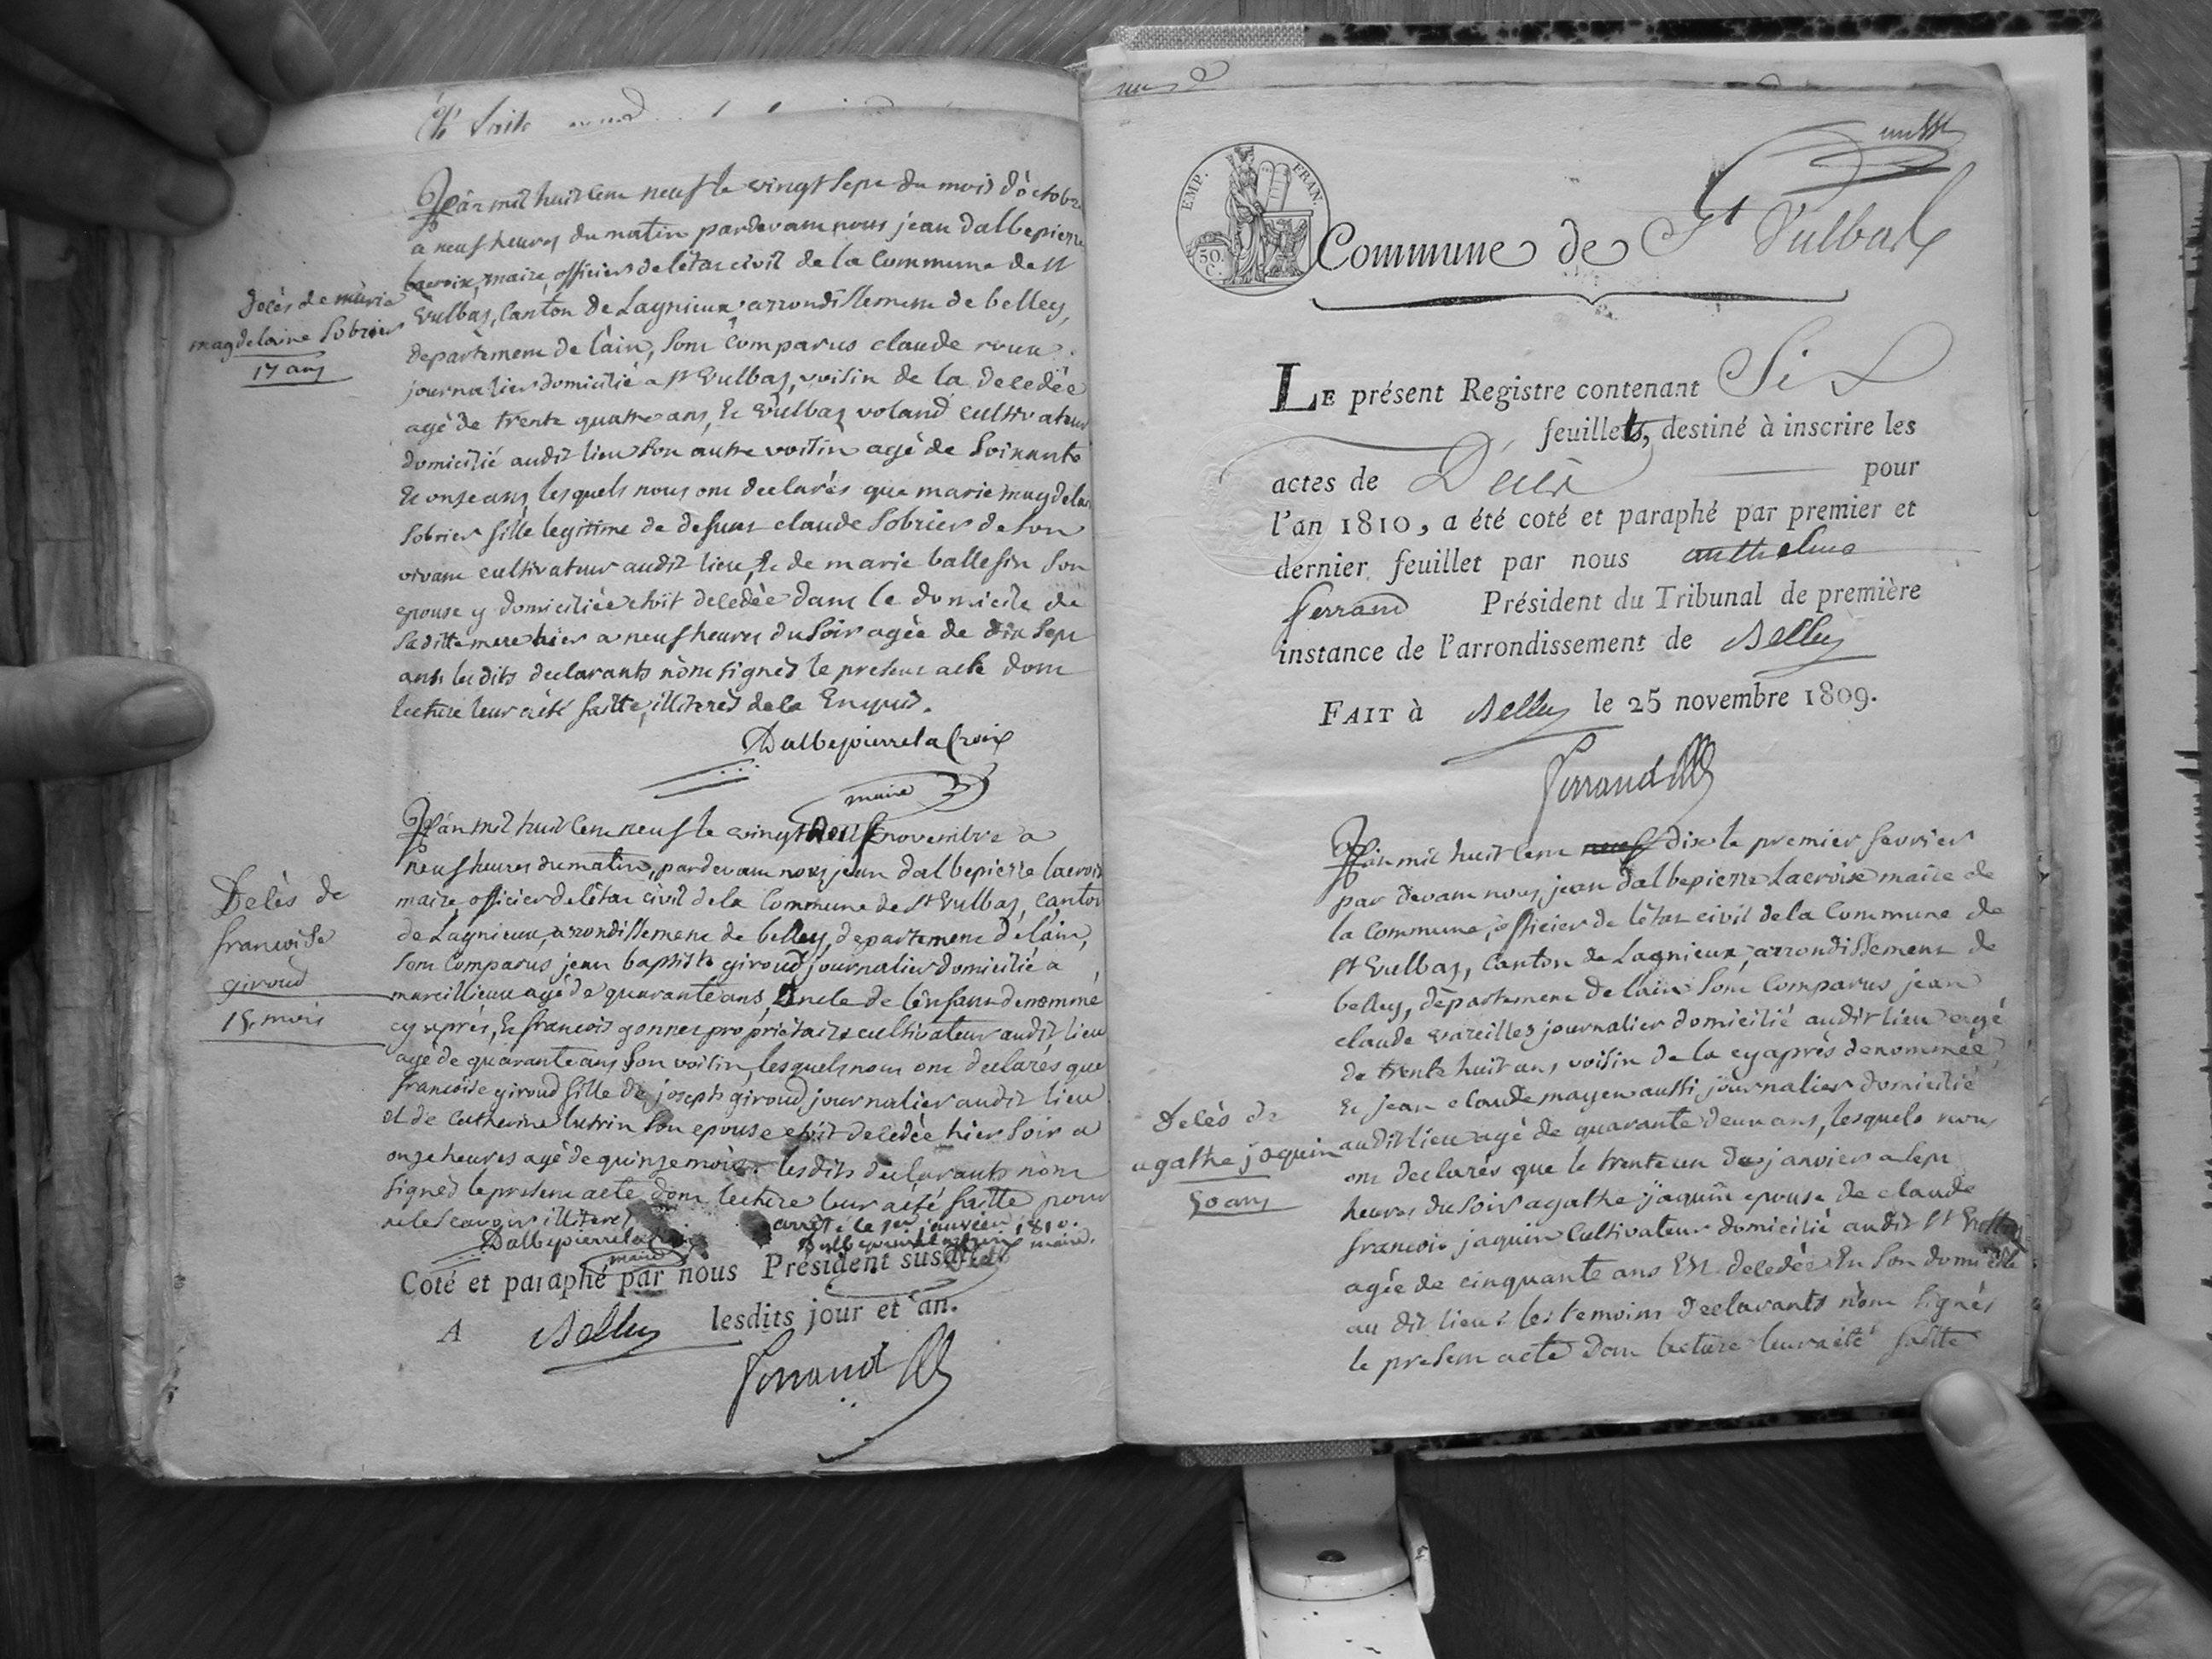 L'an mil huit cent neuf le vingt sept du mois d'octobre
a neuf heures du matin pardevant nous jean dalbepierre
lacroix, maire, officier de l'état civil de la Commune de St
Vulbas, Canton de Lagnieux arrondissement de belley,
departement de l'ain, sont comparus claude roux
journalier domicilié a St Vulbas, voisin de la decedée
agé de trente quatre ans, et vulbas voland cultivateur
domicilié audit lieu son autre voisin agé de soixante
et onze ans, lesquels nous ont declarés que marie magdelaine
Sobrier fille legitime de defunt claude Sobrier de son
vivant cultivateur audit lieu, et de marie ballefin son
epouse y domiciliée etoit decedée dans le domicile de
sa ditte mere hier a neuf heures du soir agée de dix sept
ans lesdits declarants n'ont signés le present acte dont
lecture leur a été faitte, illiterés de ce Enquis.
Dalbepierre la Croix
maire
Decès de marie
magdelaine Sobrier
17 ans
L'an mil huit cent neuf le vingt neuf novembre a
neuf heures du matin, pardevant nous jean dalbepierre lacroix
maire, officier de l'état civil de la Commune de St Vulbas, Canton
de Lagnieux, arrondissement de belley, departement de l'ain,
sont comparus jean baptiste giroud journalier domicilié a
marcillieux agé de quarante ans, oncle de l'enfant denommé
cy après, et francois gonnet proprietaire cultivateur audit lieu
agé de quarante ans son voisin, lesquels nous ont declarés que
francoise giroud fille de joseph giroud journalier audit lieu
et de Catherine lutrin son epouse etoit decedée hier soir a
onze heures agé de quinze mois. lesdits declarants n'ont
signés le present acte dont lecture leur a été faitte pour
ne le scavoir illiterés
Dalbepierre lacroix
maire
arrêté le 1er janvier 1810.
Dalbepierre lacroix maire.
Decès de
francoise
giroud
15 mois
Coté et paraphé par nous Président susdit
A Belley lesdits jour et an.
Ferrand
EMP. FRAN.
50. C.
Commune de St Vulbas
LE présent Registre contenant Six
feuillets, destiné à inscrire les
actes de Décès pour
l'an 1810, a été coté et paraphé par premier et
dernier feuillet par nous anthelme
ferrand Président du Tribunal de première
instance de l'arrondissement de Belley
FAIT à Belley le 25 novembre 1809.
Ferrand
L'an mil huit cent neuf dix le premier fevrier
par devant nous, jean dalbepierre Lacroix maire de
la commune, officier de l'état civil de la Commune de
St Vulbas, Canton de Lagnieux, arrondissement de
belley, département de l'ain sont comparus jean
claude vareilles journalier domicilié audit lieu agé
de trente huit ans, voisin de la cy après denommée,
Et jean claude mayeu aussi journalier domicilié
audit lieu agé de quarante deux ans, lesquels nous
ont declarés que le trente un de janvier a sept
heures du soir agathe jaquin epouse de claude
francois jaquin Cultivateur domicilié audit St Vulbas
agée de cinquante ans Est decedée En son domicile
au dit lieu: les temoins declarants n'ont signés
le present acte dont lecture leur a été faitte
Decès de
agathe jaquin
50 ans